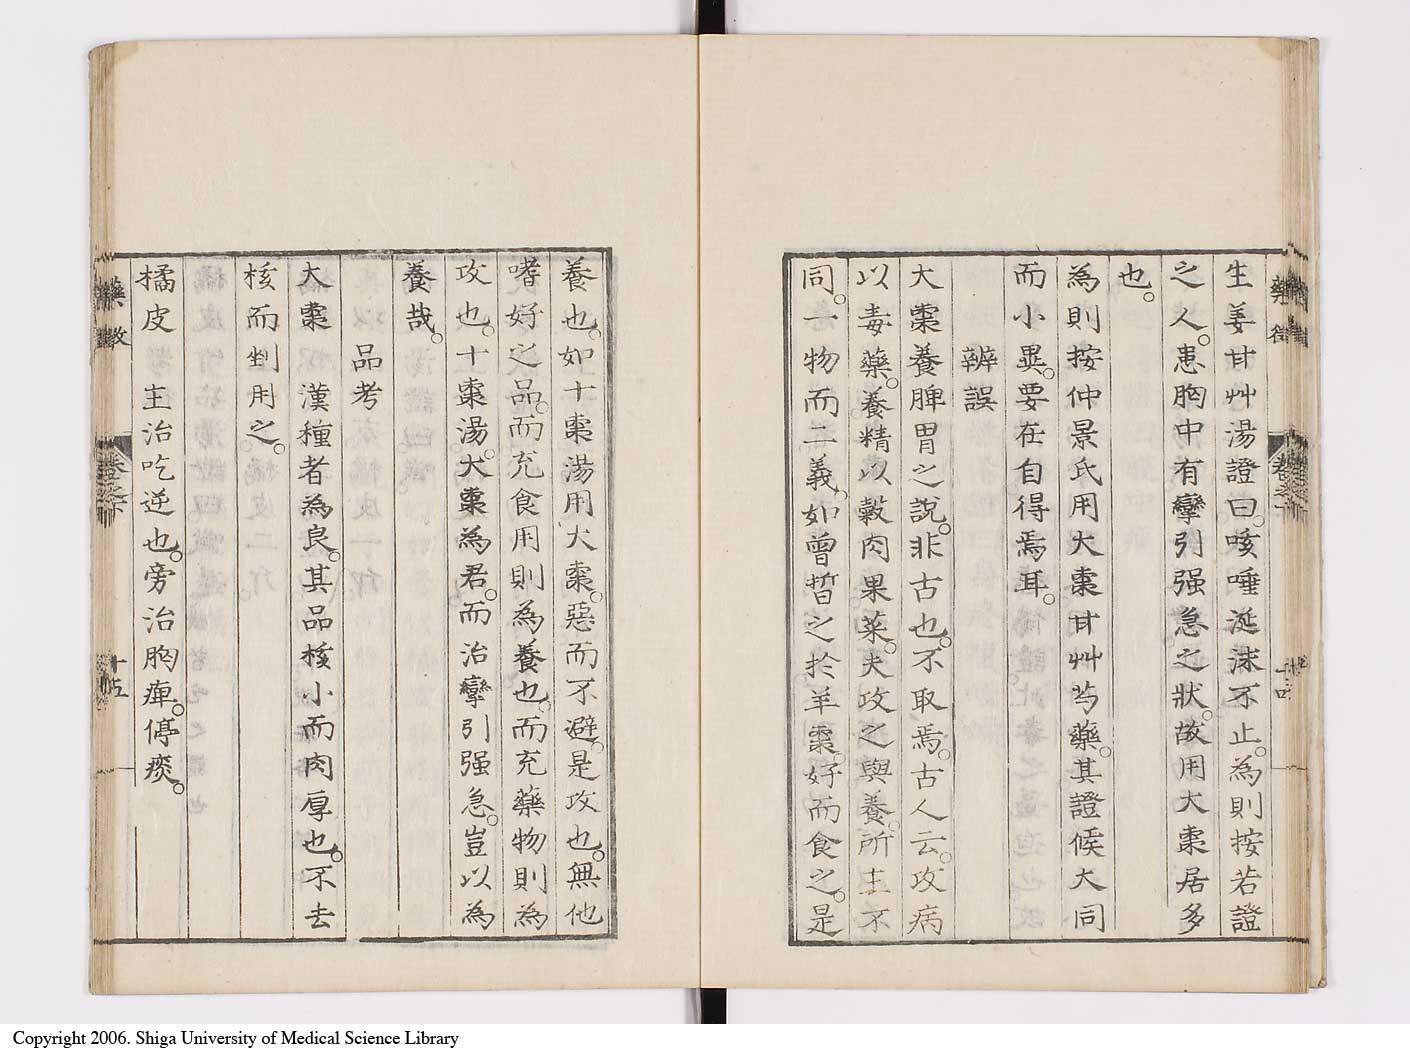 生姜甘艸湯證曰。咳唾涎沫不止。為則按若證
之人。患胸中有攣引强急之狀。故用大棗居多
也。
為則按仲景氏用大棗甘艸芍藥。其證候大同
而小異。要在自得焉耳。
辨誤
大棗養脾胃之說。非古也。不取焉。古人云。攻病
以毒藥。養精以穀肉果菜。夫攻之與養。所主不
同。一物而二義。如曾晳之於羊棗。好而食之。是
養也。如十棗湯用大棗。惡而不避。是攻也。無他
嗜好之品。而充食用則為養也。而充藥物則為
攻也。十棗湯。大棗為君。而治攣引强急。豈以為
養哉。
品考
大棗 漢種者為良。其品核小而肉厚也。不去
核而剉用之。
橘皮 主治吃逆也。旁治胸痺。停痰。
十五
Copyright 2006. Shiga University of Medical Science Library